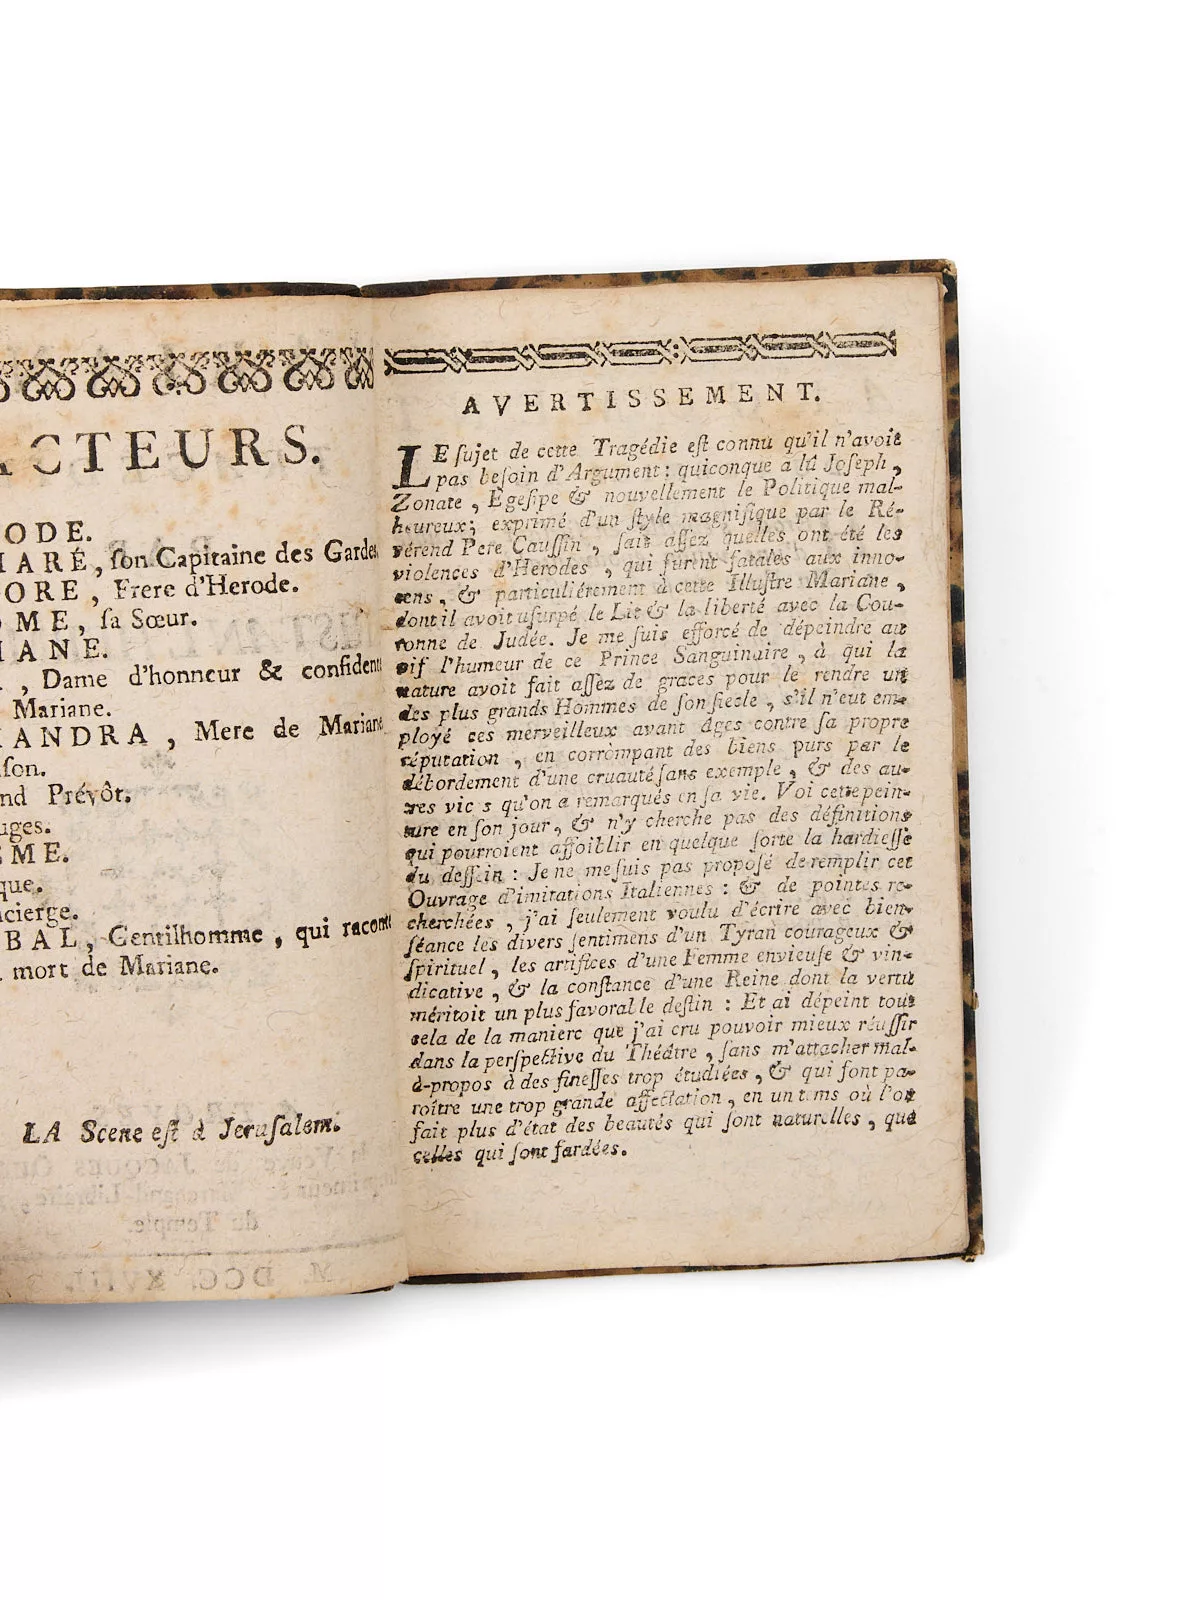 ACTEURS.
ODE.
HARÉ, ſon Capitaine des Gardes
ORE, Frere d'Herode.
OME, ſa Sœur.
IANE.
, Dame d'honneur & confidente
Mariane.
XANDRA, Mere de Mariane
ſon.
nd Prévôt.
uges.
ÊME.
que.
ncierge.
BAL, Gentilhomme, qui raconte
a mort de Mariane.
LA Scene eſt à Jeruſalem.
AVERTISSEMENT.
LE ſujet de cette Tragédie eſt connu qu'il n'avoit
pas beſoin d'Argument : quiconque a lû Joſeph,
Zonate, Egeſipe & nouvellement le Politique mal-
heureux; exprimé d'un ſtyle magnifique par le Ré-
vérend Pere Cauſſin, ſait aſſez quelles ont été les
violences d'Herodes, qui furent fatales aux inno-
cens, & particuliérement à cette Illuſtre Mariane,
dont il avoit uſurpé le Lit & la liberté avec la Cou-
ronne de Judée. Je me ſuis efforcé de dépeindre au
vif l'humeur de ce Prince Sanguinaire, à qui la
nature avoit fait aſſez de graces pour le rendre un
des plus grands Hommes de ſon ſiecle, s'il n'eut em-
ployé ces merveilleux avant ages contre ſa propre
réputation, en corrompant des biens purs par le
débordement d'une cruauté ſans exemple, & des au-
tres vic s qu'on a remarqués en ſa vie. Voi cette pein-
ture en ſon jour, & n'y cherche pas des définitions
qui pourroient affoiblir en quelque ſorte la hardieſſe
du deſſein : Je ne me ſuis pas propoſé de remplir cet
Ouvrage d'imitations Italiennes : & de pointes re-
cherchées, j'ai ſeulement voulu d'écrire avec bien-
ſéance les divers ſentimens d'un Tyran courageux &
ſpirituel, les artifices d'une Femme envieuſe & vin-
dicative, & la conſtance d'une Reine dont la vertu
méritoit un plus favorable deſtin : Et ai dépeint tout
cela de la maniere que j'ai cru pouvoir mieux réuſſir
dans la perſpective du Théâtre, ſans m'attacher mal-
à-propos à des fineſſes trop étudiées, & qui font pa-
roître une trop grande affectation, en un tems où l'on
fait plus d'état des beautés qui ſont naturelles, que
celles qui ſont fardées.